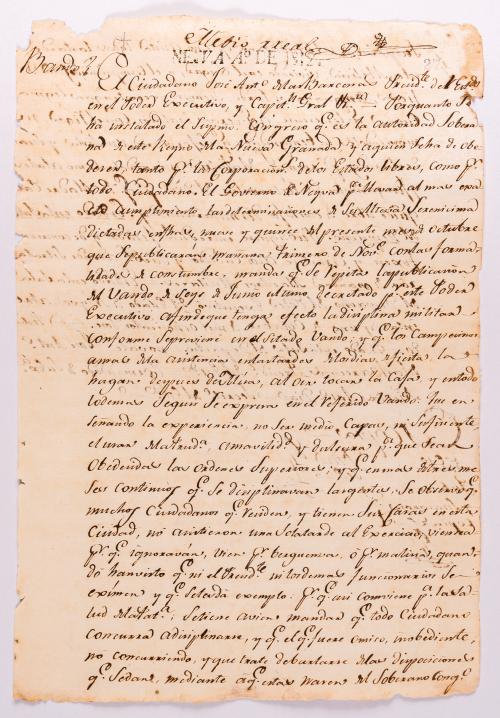 Medio real
NEIVA Aº DE 1812
Bando
El Ciudadano José Antº de la Barcena Presidte. del Estado
en el Poder Executivo, y Capn. Gral. Porquanto se
ha instalado el Supmo. Congreso q.e es la autoridad Sobera
na de este Reyno de la Nueva Granada, y aquien se ha de obe
decer, tanto pr. la Corporacion de los Estados libres, como pr.
todo Ciudadano. El Govierno de Neyva pa. llevar al mas exa
cto cumplimiento, las determinaciones de Su Alteza Serenicima
dictadas en tres, nueve y quince del presente mes de Octubre
que se publicaran mañana primero de Nove. con las forma
lidades de constumbre, manda q.e se repita la publicacion
del Vando de seys de Junio ultimo, decretado pr. este Poder
Executivo afin de que tenga efecto la disiplina militar
conforme se previene en el sitado Vando; y q.e los Campecinos
amas de la asistencia en las tardes de los dias de fiesta la
hagan despues de Misa, al oir tocar la Caxa, y en todo
lo demas segun se expresa en el referido Vando. Que en
señando la experiencia, no ser medio Capas, ni suficiente
el usar de la prude. amavilidad, y dulsura pa. que sean
Obedecidas las Ordenes Superiores; y q.e en mas de tres me
ses continuos q.e se disiplinavan las gentes, se observo q.e
muchos Ciudadanos q.e residen, y tienen sus casas en esta
Ciudad, no asistieron una sola tarde al Exercicio, vien sea
pr. q.e ignoravan, vien pr. berguensa, ó pr. malicia, quan
do han visto q.e ni el Presidte. ni los demas funcionarios se
eximen y q.e se les da exemplo: pr. q.e asi conviene pa. la sa
lud de la Pata.; se tiene a vien mandar q.e todo Ciudadano
concurra a disiplinarse, y q.e el q.e fuere omiso, inobediente,
no concurriendo, y que trate de burlarse de las disposiciones
q.e se dan, mediante aq.e estas nacen del Soberano Congo.